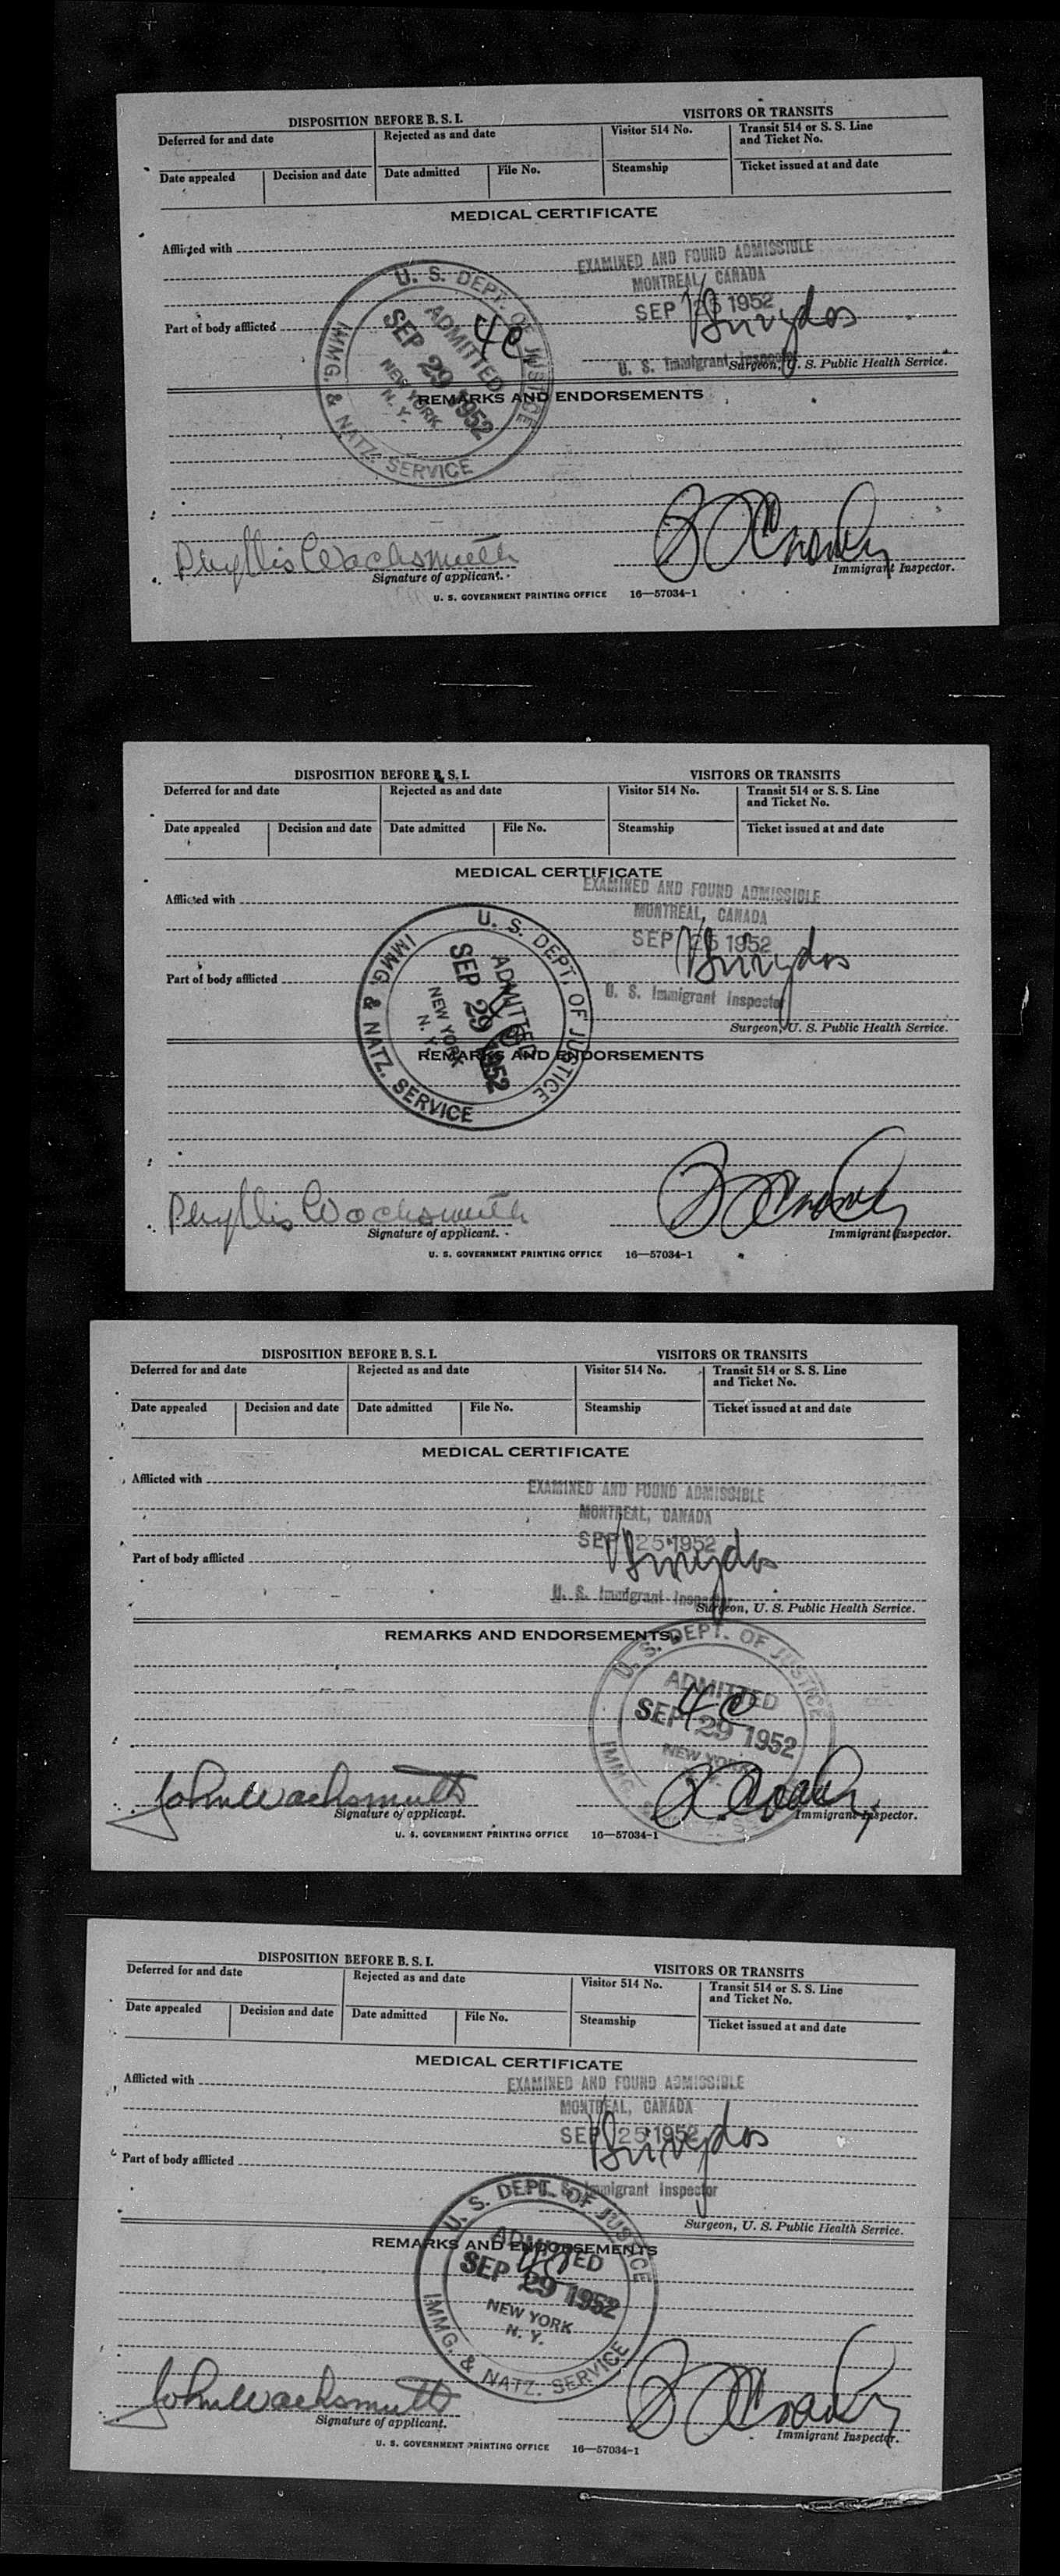 DISPOSITION BEFORE B. S. I.
VISITORS OR TRANSITS
Deferred for and date
Rejected as and date
Visitor 514 No.
Transit 514 or S. S. Line
and Ticket No.
Date appealed
Decision and date
Date admitted
File No.
Steamship
Ticket issued at and date
MEDICAL CERTIFICATE
Afflicted with
EXAMINED AND FOUND ADMISSIBLE
MONTREAL, CANADA
SEP 1952
Part of body afflicted
U. S. Immigrant Inspector
Surgeon, U. S. Public Health Service.
U. S. DEPT. OF JUSTICE
ADMITTED
4C
SEP 29 1952
NEW YORK
N. Y.
IMMG. & NATZ. SERVICE
REMARKS AND ENDORSEMENTS
Phyllis Wachsmuth
Signature of applicant.
Immigrant Inspector.
U. S. GOVERNMENT PRINTING OFFICE 16—57034-1
DISPOSITION BEFORE B. S. I.
VISITORS OR TRANSITS
Deferred for and date
Rejected as and date
Visitor 514 No.
Transit 514 or S. S. Line
and Ticket No.
Date appealed
Decision and date
Date admitted
File No.
Steamship
Ticket issued at and date
MEDICAL CERTIFICATE
Afflicted with
EXAMINED AND FOUND ADMISSIBLE
MONTREAL, CANADA
SEP 1952
Part of body afflicted
U. S. Immigrant Inspector
Surgeon, U. S. Public Health Service.
U. S. DEPT. OF JUSTICE
ADMITTED
SEP 29 1952
NEW YORK
N. Y.
IMMG. & NATZ. SERVICE
REMARKS AND ENDORSEMENTS
Phyllis Wachsmuth
Signature of applicant.
Immigrant Inspector.
U. S. GOVERNMENT PRINTING OFFICE 16—57034-1
DISPOSITION BEFORE B. S. I.
VISITORS OR TRANSITS
Deferred for and date
Rejected as and date
Visitor 514 No.
Transit 514 or S. S. Line
and Ticket No.
Date appealed
Decision and date
Date admitted
File No.
Steamship
Ticket issued at and date
MEDICAL CERTIFICATE
Afflicted with
EXAMINED AND FOUND ADMISSIBLE
MONTREAL, CANADA
SEP 25 1952
Part of body afflicted
U. S. Immigrant Inspector
Surgeon, U. S. Public Health Service.
REMARKS AND ENDORSEMENTS
U. S. DEPT. OF JUSTICE
ADMITTED
4C
SEP 29 1952
NEW YORK
IMMG.
John Wachsmuth
Signature of applicant.
Immigrant Inspector.
U. S. GOVERNMENT PRINTING OFFICE 16—57034-1
DISPOSITION BEFORE B. S. I.
VISITORS OR TRANSITS
Deferred for and date
Rejected as and date
Visitor 514 No.
Transit 514 or S. S. Line
and Ticket No.
Date appealed
Decision and date
Date admitted
File No.
Steamship
Ticket issued at and date
MEDICAL CERTIFICATE
Afflicted with
EXAMINED AND FOUND ADMISSIBLE
MONTREAL, CANADA
SEP 25 1952
Part of body afflicted
U. S. Immigrant Inspector
Surgeon, U. S. Public Health Service.
U. S. DEPT. OF JUSTICE
REMARKS AND ENDORSEMENTS
ADMITTED
SEP 29 1952
NEW YORK
N. Y.
IMMG. & NATZ. SERVICE
John Wachsmuth
Signature of applicant.
Immigrant Inspector.
U. S. GOVERNMENT PRINTING OFFICE 16—57034-1